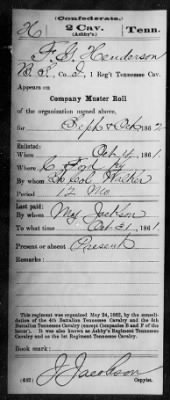 (Confederate.)
H 2 Cav. Tenn.
(Ashby's)
F. G. Henderson
Co. I, 1 Reg't Tennessee Cav.
Appears on
Company Muster Roll
of the organization named above,
for Sept & Oct, 1862
Enlisted:
When Oct 14, 1861
Where Ky
By whom Lt Col
Period 12 Mo
Last paid:
By whom Maj Jackson
To what time Oct 31, 1861
Present or absent Present
Remarks:
This regiment was organized May 24, 1862, by consolidation
of the 4th Battalion Tennessee Cavalry and the 5th
Battalion Tennessee Cavalry (except Companies B and F of the
latter). It was also known as Ashby's Regiment Tennessee
Cavalry and as the 1st Regiment Tennessee Cavalry.
Book mark:
(642) J. Jacobson
Copyist.